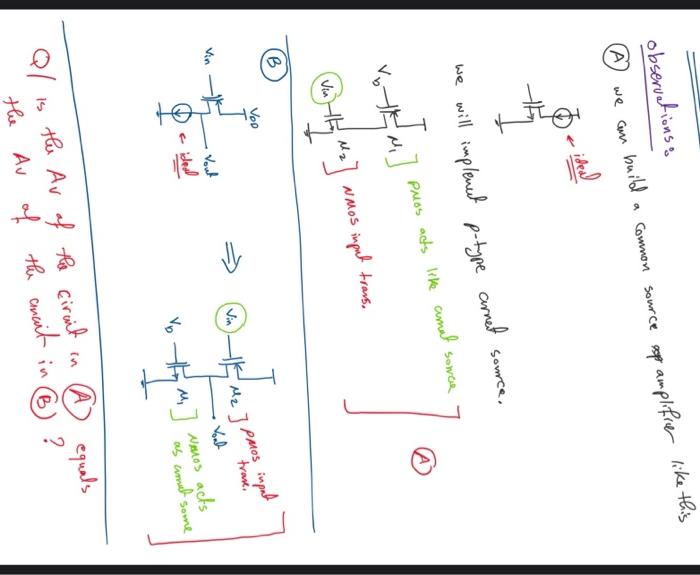 Observations:
(A) we can build a common source amplifier like this
← ideal
we will implement p-type current source.
Vb
M1 ] PMOS acts like current source
Vin
M2 ] NMOS input trans.
(A)
(B)
VDD
Vin
Vout
← ideal
⇒
Vin
M2 ] PMOS input trans.
Vout
Vb
M1 ] NMOS acts
as current source
Q/ is the Av of the circuit in (A) equals
the Av of the circuit in (B) ?